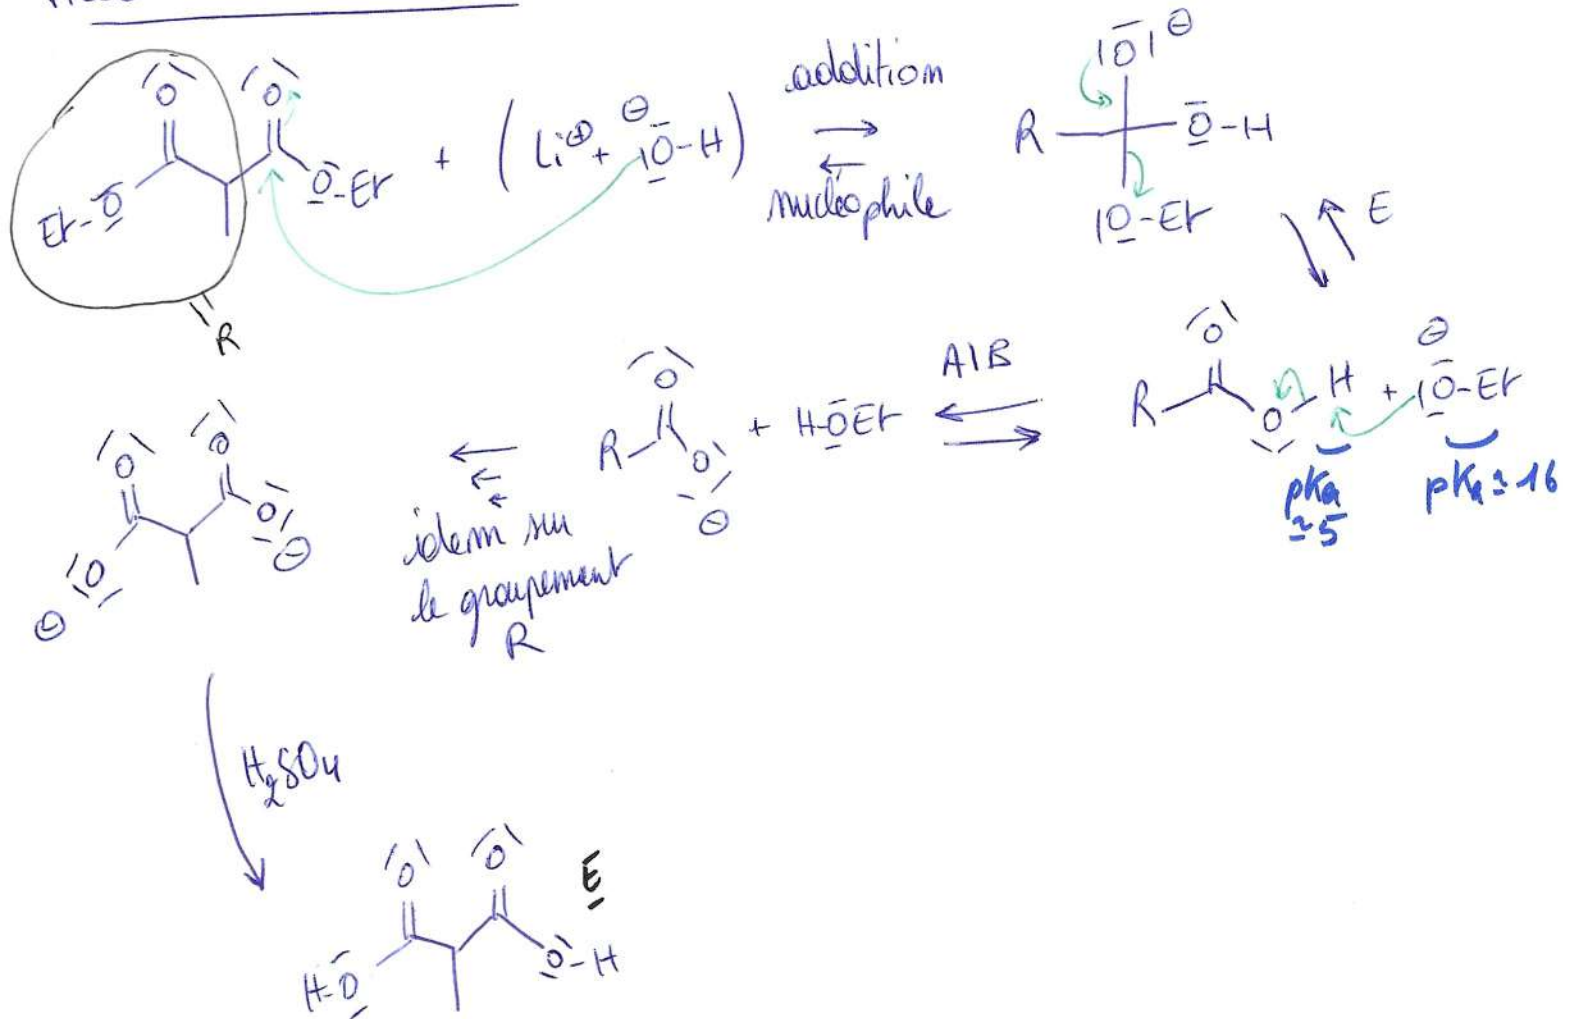 O O
Et-O O-Et + (Li⊕ + ⊖ |O-H) addition
nucléophile
R
|O|⊖
R O-H
|O-Et
E
O
R O H + ⊖ |O-Et
pKa ≃ 5 pKa ≃ 16
A/B
O
R O ⊖ + H-OEt
idem sur
le groupement
R
O O
⊖ O O ⊖
H2SO4
O O E
H-O O-H